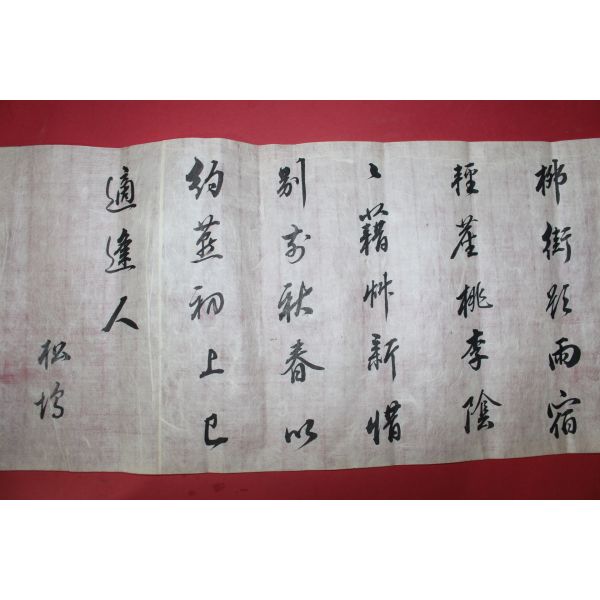 柳街雨宿
輕塵桃李陰
〻藉艸新惜
別前秋春以
約燕初上巳
適逢人
松塢